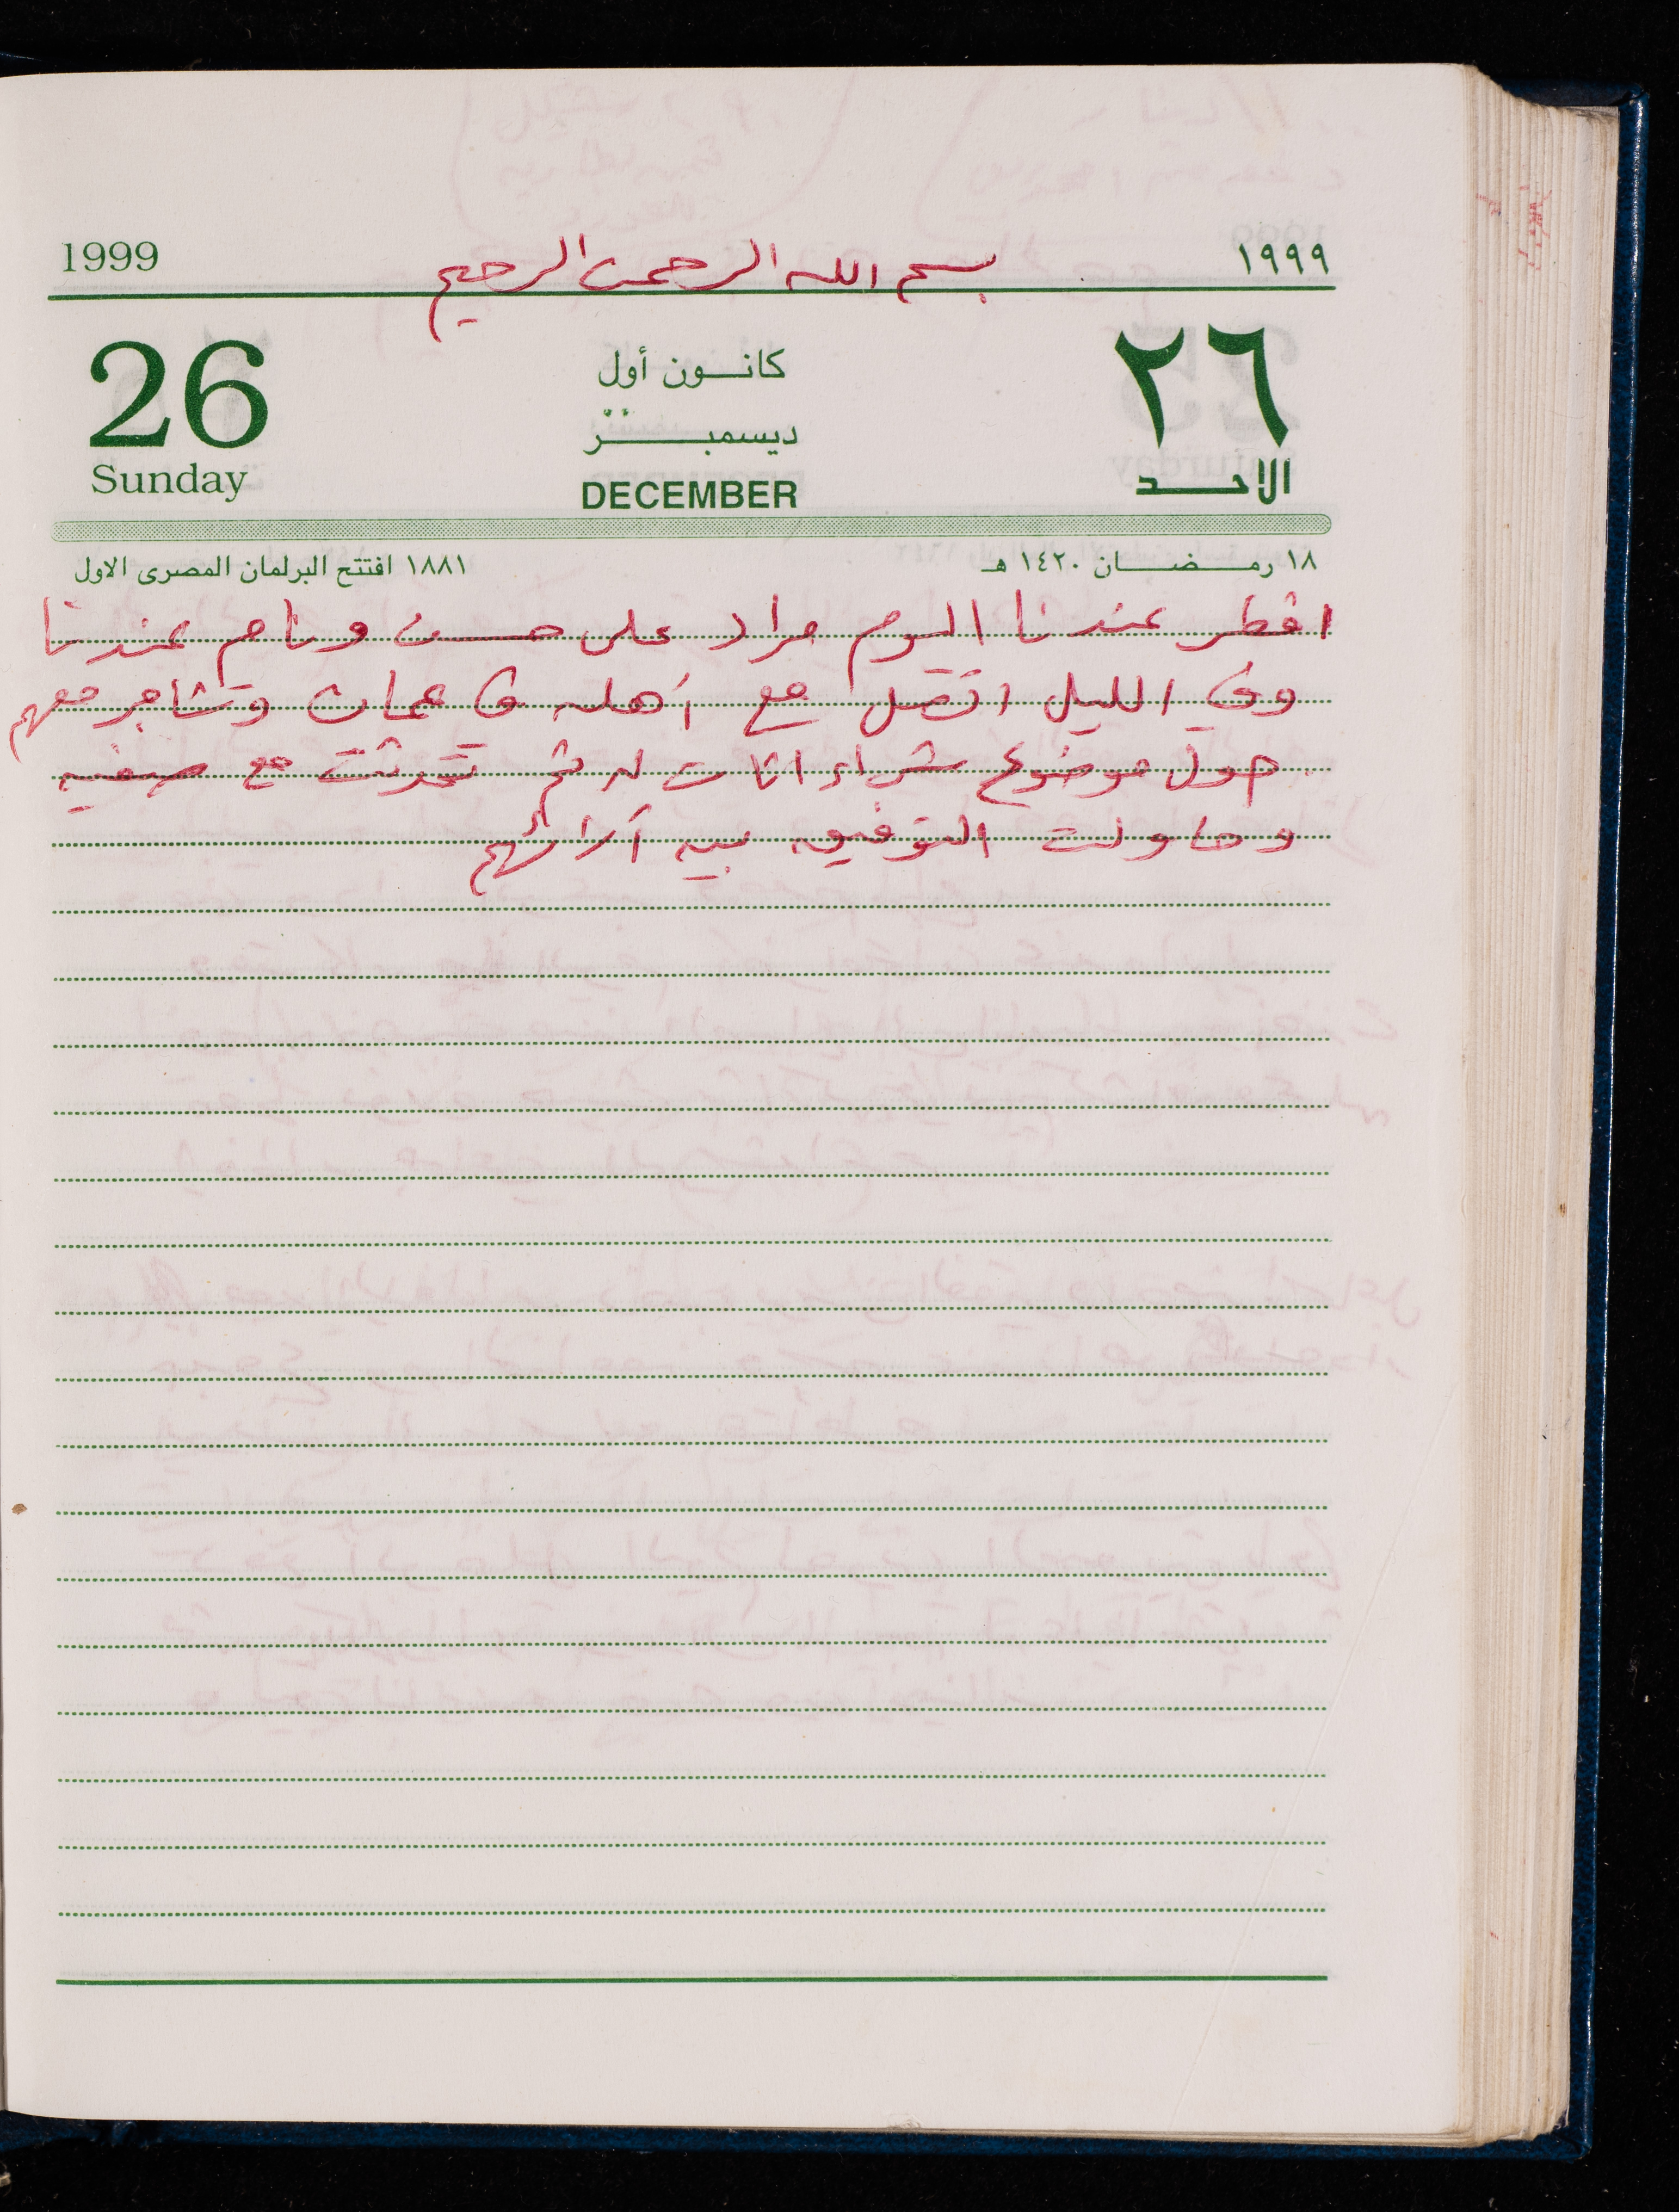 1999 بسم الله الرحمن الرحيم ١٩٩٩
26 كانون أول ٢٦
ديسمبر
Sunday DECEMBER الاحد
١٨ رمضان ١٤٢٠ هـ ١٨٨١ افتتح البرلمان المصرى الاول
افطر عندنا اليوم مراد على حسن ونام عندنا
وفي الليل اتصل مع أهله في عمان وتشاجر معهم
حول موضوع شراء اثاث له ثم تحدثت مع صفيه
وحاولت التوفيق بين آرائهم